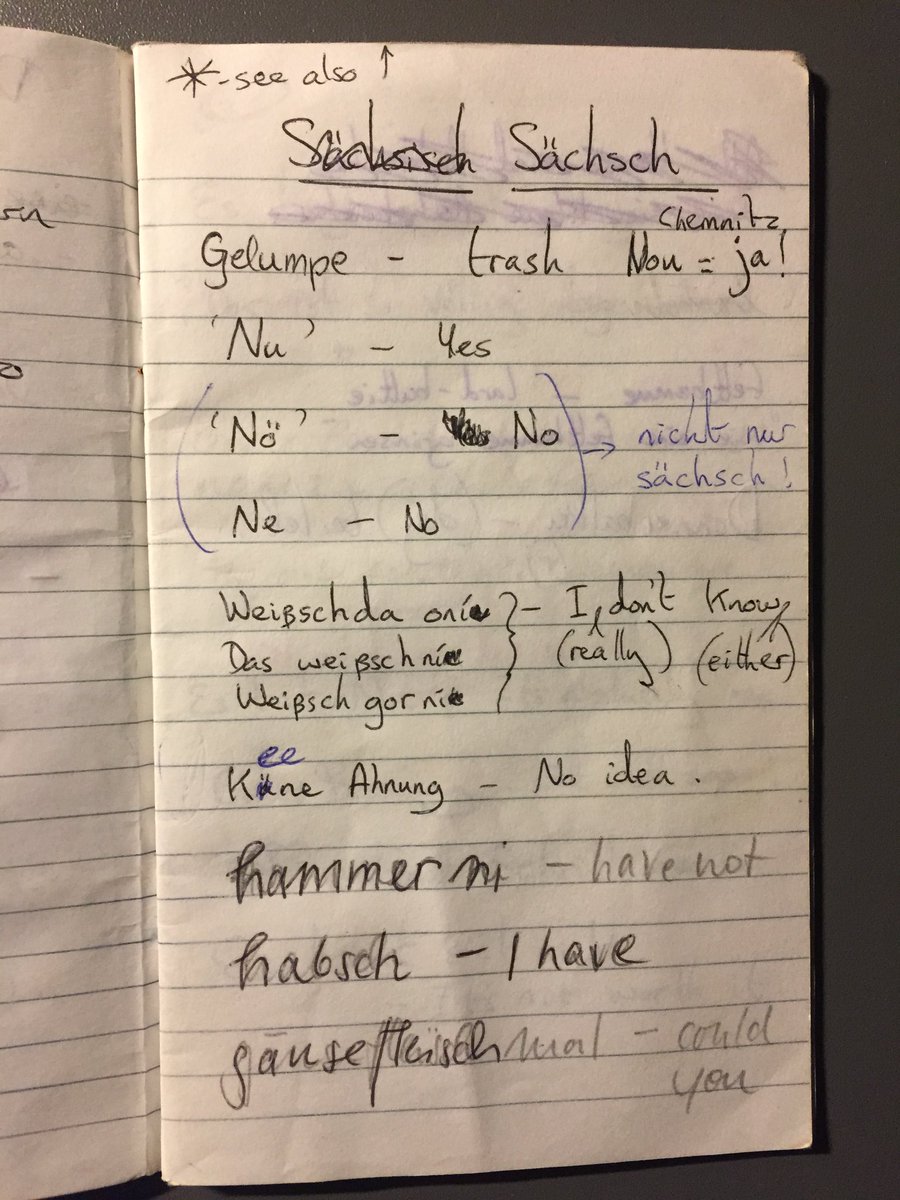 *-see also ↑
Sächsisch Sächsch
Chemnitz
Gelumpe - trash Nou = ja!
'Nu' - Yes
'Nö' - No → nicht nur
sächsch!
Ne - No
Weißschda oni - I don't know
Das weißschni (really) (either)
Weißsch gor ni
ee
Keene Ahnung - No idea.
hammer ni - have not
habsch - I have
gänsefleischmal - could
you